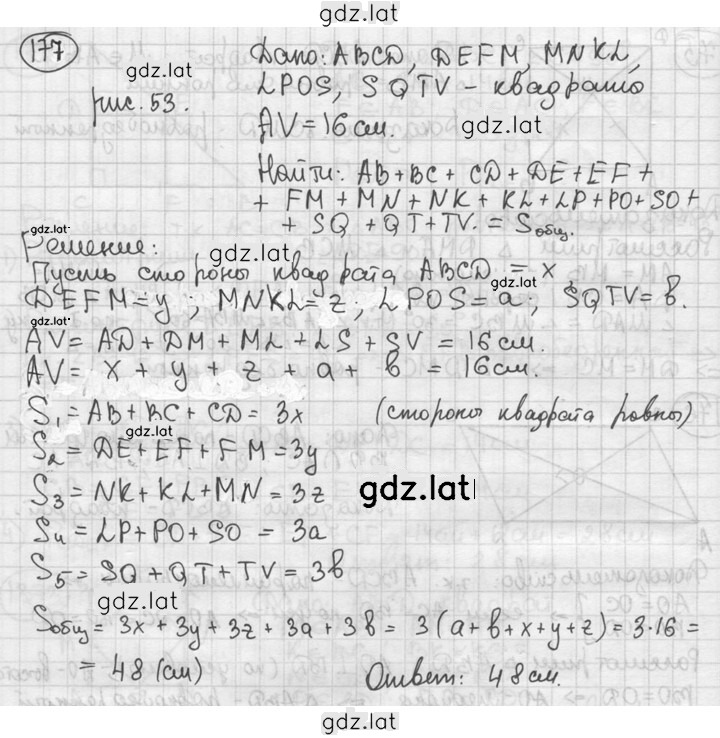 gdz.lat
177
Дано: ABCD, DEFM, MNKL,
gdz.lat
LPOS, SQTV - квадраты
рис. 53.
gdz.lat
AV = 16 см.
Найти: AB + BC + CD + DE + EF +
+ FM + MN + NK + KL + LP + PO + SO +
gdz.lat
+ SQ + QT + TV. = Sобщ.
Решение:
gdz.lat
Пусть стороны квадрата ABCD = x
gdz.lat
DEFM = y; MNKL = z; LPOS = a; SQTV = b.
gdz.lat
AV = AD + DM + ML + LS + SV = 16 см.
AV = x + y + z + a + b = 16 см.
S1 = AB + BC + CD = 3x (стороны квадрата равны)
gdz.lat
S2 = DE + EF + FM = 3y
S3 = NK + KL + MN = 3z
gdz.lat
S4 = LP + PO + SO = 3a
S5 = SQ + QT + TV = 3b
gdz.lat
Sобщ = 3x + 3y + 3z + 3a + 3b = 3(a + b + x + y + z) = 3·16 =
= 48 (см) Ответ: 48 см.
gdz.lat